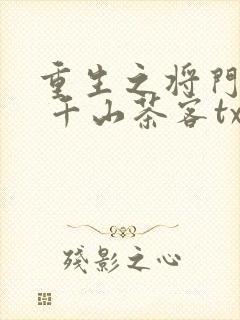 重生之将門
千山茶客tx
殘影之心